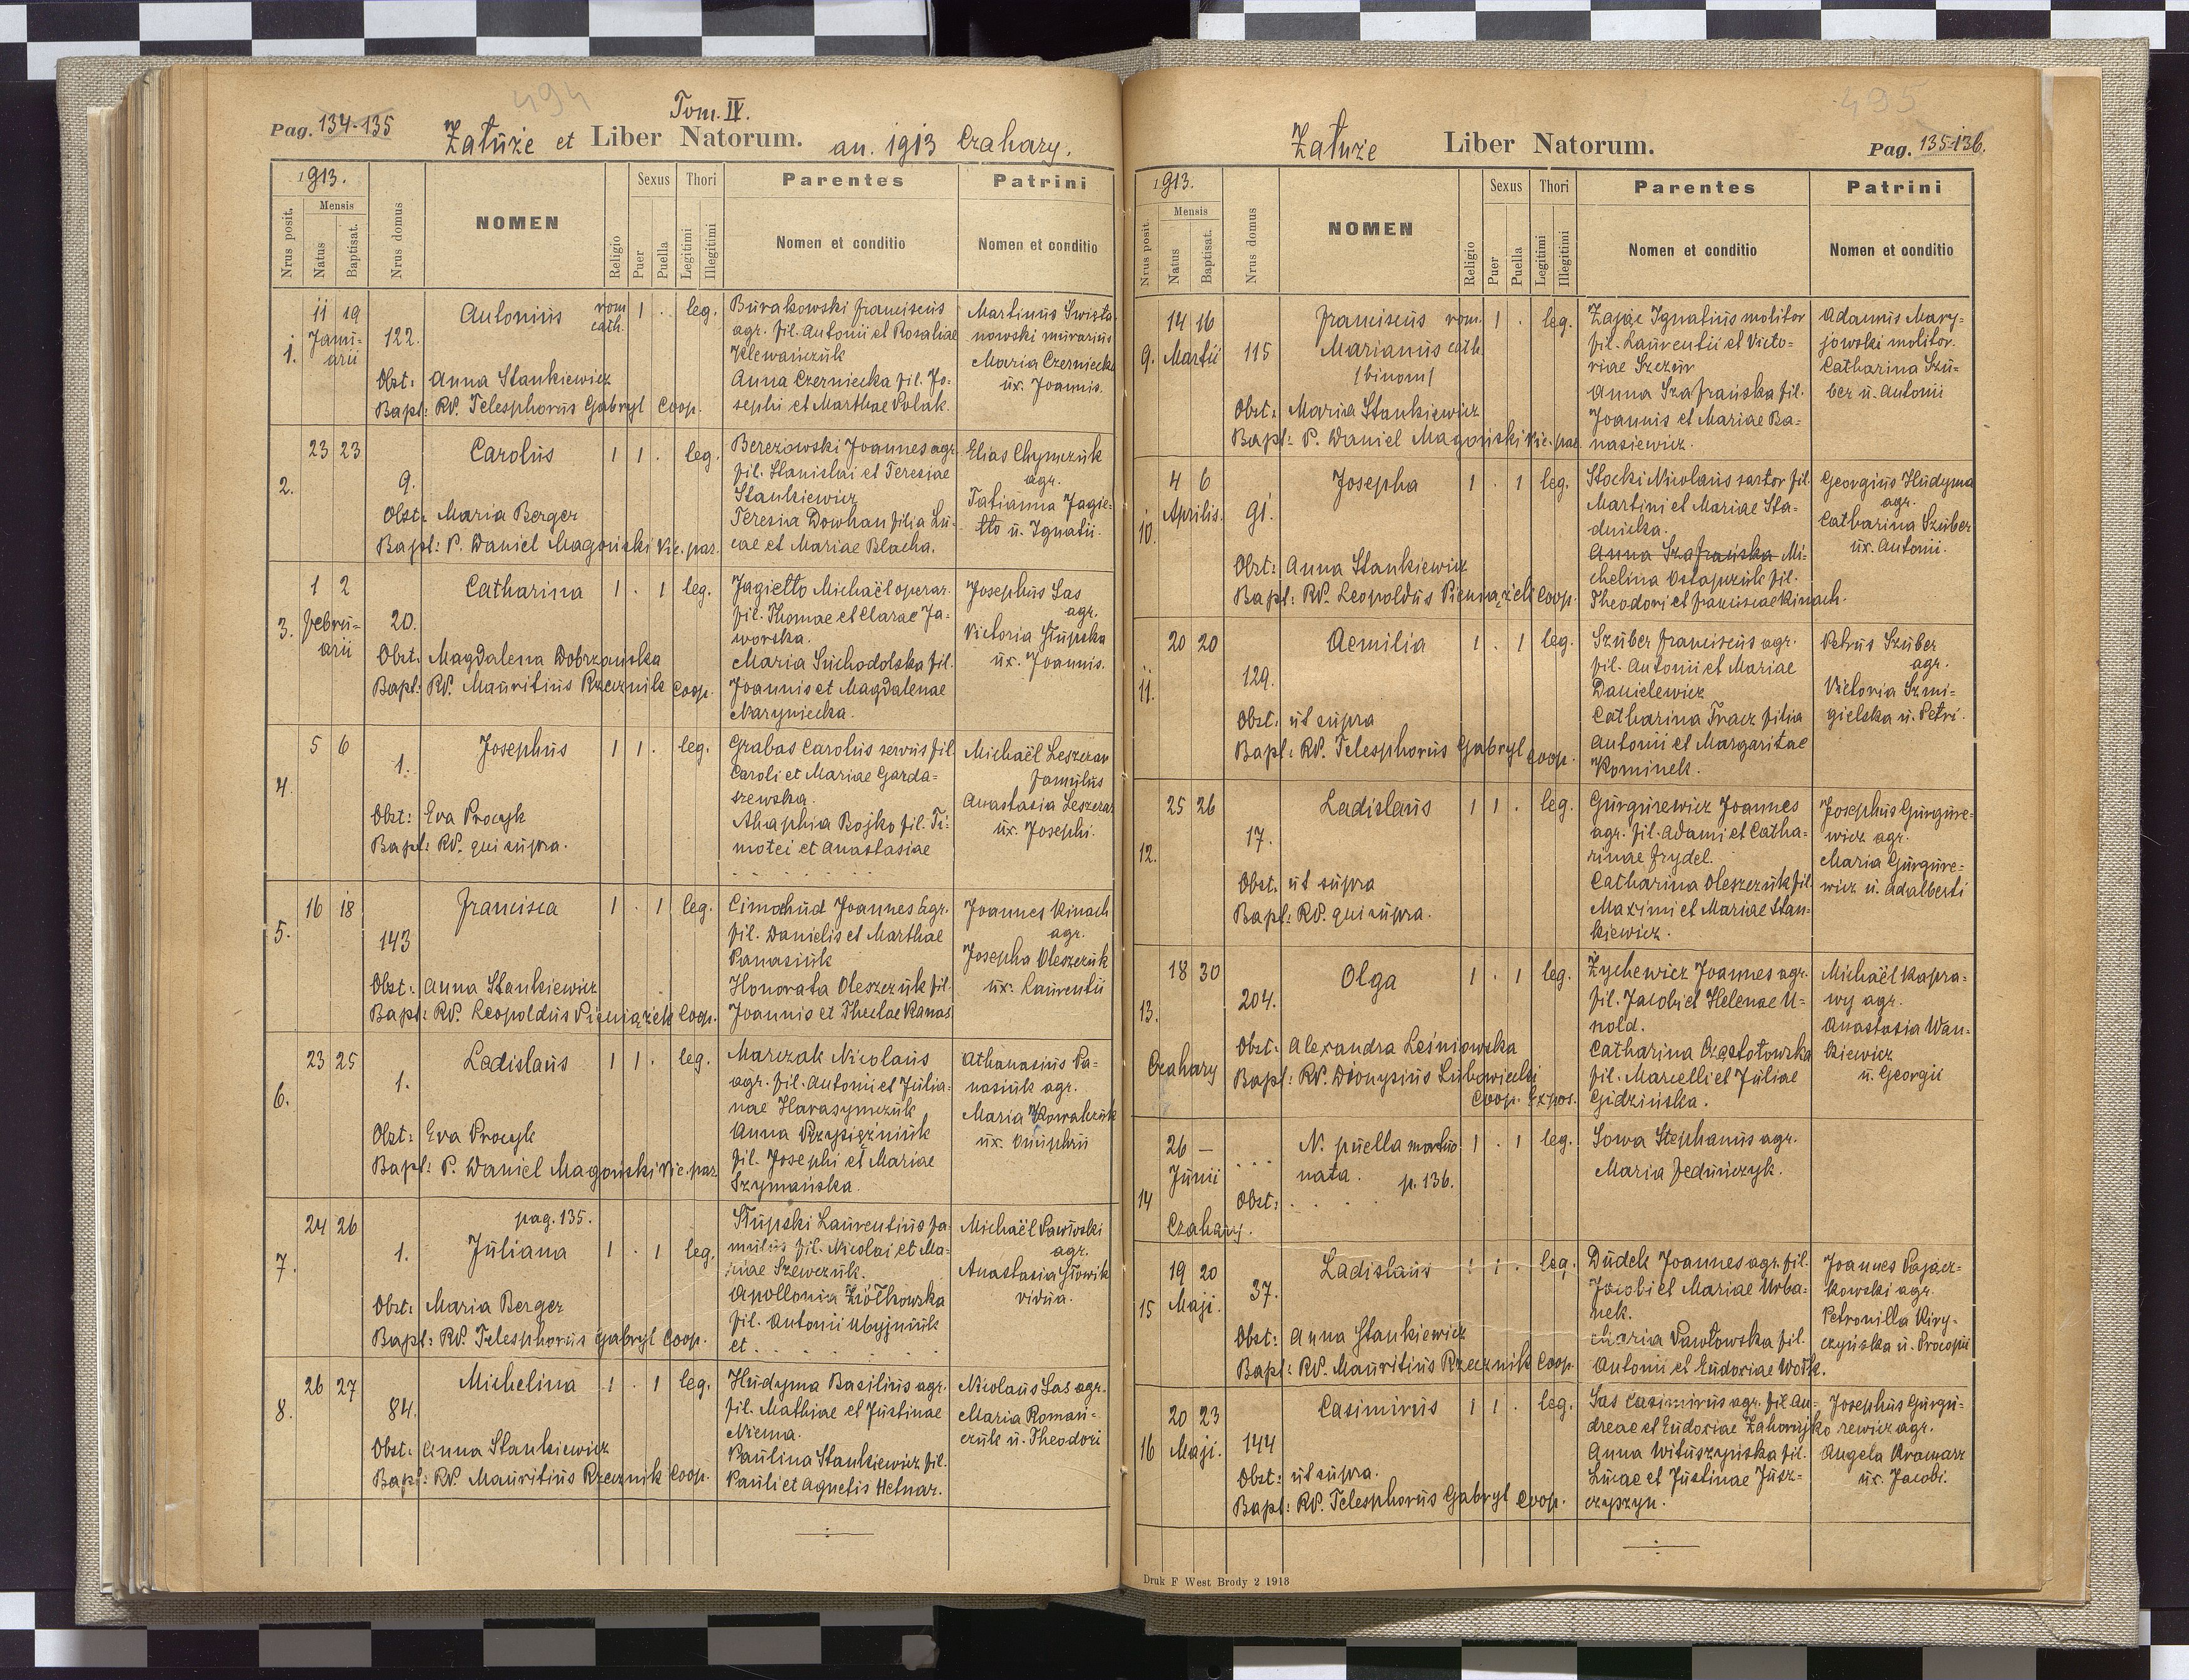 494
Tom. IV.
Pag. 134-135
Załuże et Liber Natorum. an. 1913 Czahary.
1913.
Mensis
Nrus posit.
Natus
Baptisat.
Nrus domus
NOMEN
Religio
Sexus
Puer
Puella
Thori
Legitimi
Illegitimi
Parentes
Nomen et conditio
Patrini
Nomen et conditio
1.
11 19
Janu-
arii
122.
Antonius
rom.
cath.
1 . leg.
Obst: Anna Stankiewicz
Bapt: RP. Telesphorus Gabryl Coop.
Burakowski Franciscus
agr. fil. Antonii et Rosaliae
Klewańczuk
Anna Czerniecka fil. Jo-
sephi et Marthae Polak.
Martinus Swista-
nowski murarius
Maria Czerniecka
ux. Joannis.
2.
23 23
9.
Carolus
1 1 . leg.
Obst: Maria Berger
Bapt: P. Daniel Magoński Vic. par.
Berezowski Joannes agr.
fil. Stanislai et Teresiae
Stankiewicz
Teresia Dowhan filia Lu-
cae et Mariae Blacha.
Elias Chymczuk
agr.
Tatianna Jagie-
łło u. Ignatii.
3.
1 2
Febru-
arii
20.
Catharina
1 . 1 leg.
Obst: Magdalena Dobrzańska
Bapt: RP. Mauritius Rzecznik Coop.
Jagiełło Michaël operar.
fil. Thomae et Clarae Ja-
worska.
Maria Suchodolska fil.
Joannis et Magdalenae
Naryniecka.
Josephus Sas
agr.
Victoria Słupska
ux. Joannis.
4.
5 6
1.
Josephus
1 1 . leg.
Obst: Eva Procyk
Bapt: RP. qui supra.
Grabas Carolus servus fil.
Caroli et Mariae Garda-
szewska.
Ahaphia Bojko fil. Ti-
motei et Anastasiae
. . . . . .
Michaël Leszczar
famulus
Anastasia Leszczar
ux. Josephi.
5.
16 18
143
Francisca
1 . 1 leg.
Obst: Anna Stankiewicz
Bapt: RP. Leopoldus Pieniążek Coop.
Cimochud Joannes agr.
fil. Danielis et Marthae
Panasiuk
Honorata Oleszczuk fil.
Joannis et Theclae Kanas
Joannes Kinach
agr.
Josepha Oleszczuk
ux. Laurentii
6.
23 25
1.
Ladislaus
1 1 . leg.
Obst: Eva Procyk
Bapt: P. Daniel Magoński Vic. par.
Marczak Nicolaus
agr. fil. Antonii et Julia-
nae Harasymczuk
Anna Przysiężniuk
fil. Josephi et Mariae
Szymańska.
Athanasius Pa-
nasiuk agr.
Maria Kowalczuk
ux. Onuphrii
7.
24 26
pag. 135.
1.
Juliana
1 . 1 leg.
Obst: Maria Berger
Bapt: RP. Telesphorus Gabryl Coop.
Słupski Laurentius fa-
mulus fil. Nicolai et Ma-
riae Szewczuk.
Apollonia Ziółkowska
fil. Antonii Ubyjniuk
et . . . . . .
Michaël Pawłoski
agr.
Anastasia Słowik
vidua.
8.
26 27
84.
Michelina
1 . 1 leg.
Obst: Anna Stankiewicz
Bapt: RP. Mauritius Rzecznik Coop.
Hudyma Basilius agr.
fil. Mathiae et Justinae
Niema.
Paulina Stankiewicz fil.
Pauli et Agnetis Hetnar.
Nicolaus Sas agr.
Maria Romań-
czuk u. Theodori
495
Załuże Liber Natorum.
Pag. 135-136.
1913.
Mensis
Nrus posit.
Natus
Baptisat.
Nrus domus
NOMEN
Religio
Sexus
Puer
Puella
Thori
Legitimi
Illegitimi
Parentes
Nomen et conditio
Patrini
Nomen et conditio
9.
14 16
Martii
115
Franciscus
Marianus
/binom/
rom.
cath.
1 . leg.
Obst: Maria Stankiewicz
Bapt: P. Daniel Magoński Vic. par.
Zając Ignatius molitor
fil. Laurentii et Victo-
riae Szczur
Anna Szafrańska fil.
Joannis et Mariae Ba-
nasiewicz.
Adamus Mary-
jowski molitor.
Catharina Szu-
ber u. Antonii
10.
4 6
Aprilis.
91.
Josepha
1 . 1 leg.
Obst: Anna Stankiewicz
Bapt: RP. Leopoldus Pieniążek Coop.
Stocki Nicolaus sartor fil.
Martini et Mariae Sta-
dnicka.
Anna Szafrańska Mi-
chelina Ostapczuk fil.
Theodori et Franciscae Kinach.
Georgius Hudyma
agr.
Catharina Szuber
ux. Antonii.
11.
20 20
129.
Aemilia
1 . 1 leg.
Obst: ut supra
Bapt: RP. Telesphorus Gabryl Coop.
Szuber Franciscus agr.
fil. Antonii et Mariae
Danielewicz
Catharina Tracz filia
Antonii et Margaritae
Kominek.
Petrus Szuber
agr.
Victoria Szmi-
gielska u. Petri.
12.
25 26
17.
Ladislaus
1 1 . leg.
Obst: ut supra
Bapt: RP. qui supra.
Gurgurewicz Joannes
agr. fil. Adami et Catha-
rinae Frydel.
Catharina Oleszczuk fil.
Maximi et Mariae Stan-
kiewicz.
Josephus Gurgure-
wicz agr.
Maria Gurgure-
wicz u. Adalberti
13.
18 30
204.
Czahary
Olga
1 . 1 leg.
Obst: Alexandra Leśniowska
Bapt: RP. Dionysius Lubowiecki
Coop. Expos.
Zychewicz Joannes agr.
fil. Jacobi et Helenae U-
nold.
Catharina Częstołowska
fil. Marcelli et Juliae
Gidzińska.
Michaël Kapra-
wy agr.
Anastasia Wan-
kiewicz
u. Georgii
14
26 —
Junii
Czahary.
. . .
N. puella mortuo
nata. p. 136.
1 . 1 leg.
Obst: . .
Sowa Stephanus agr.
Maria Fedińczyk.
15
19 20
Maji.
37.
Ladislaus
1 1 . leg.
Obst: Anna Stankiewicz
Bapt: RP. Mauritius Rzecznik Coop.
Dudek Joannes agr. fil.
Jacobi et Mariae Urba-
nek.
Maria Pawłowska fil.
Antonii et Eudoxiae Wołk.
Joannes Pającz-
kowski agr.
Petronilla Kiry-
czyńska u. Procopii
16
20 23
Maji.
144
Casimirus
1 1 . leg.
Obst: ut supra.
Bapt: RP. Telesphorus Gabryl Coop.
Sas Casimirus agr. fil. An-
dreae et Eudoxiae Zahorujko
Anna Wituszyńska fil.
Lucae et Justinae Jusz-
czyszyn.
Josephus Gurgu-
rewicz agr.
Angela Kramarz
ux. Jacobi.
Druk F West Brody 2 1918